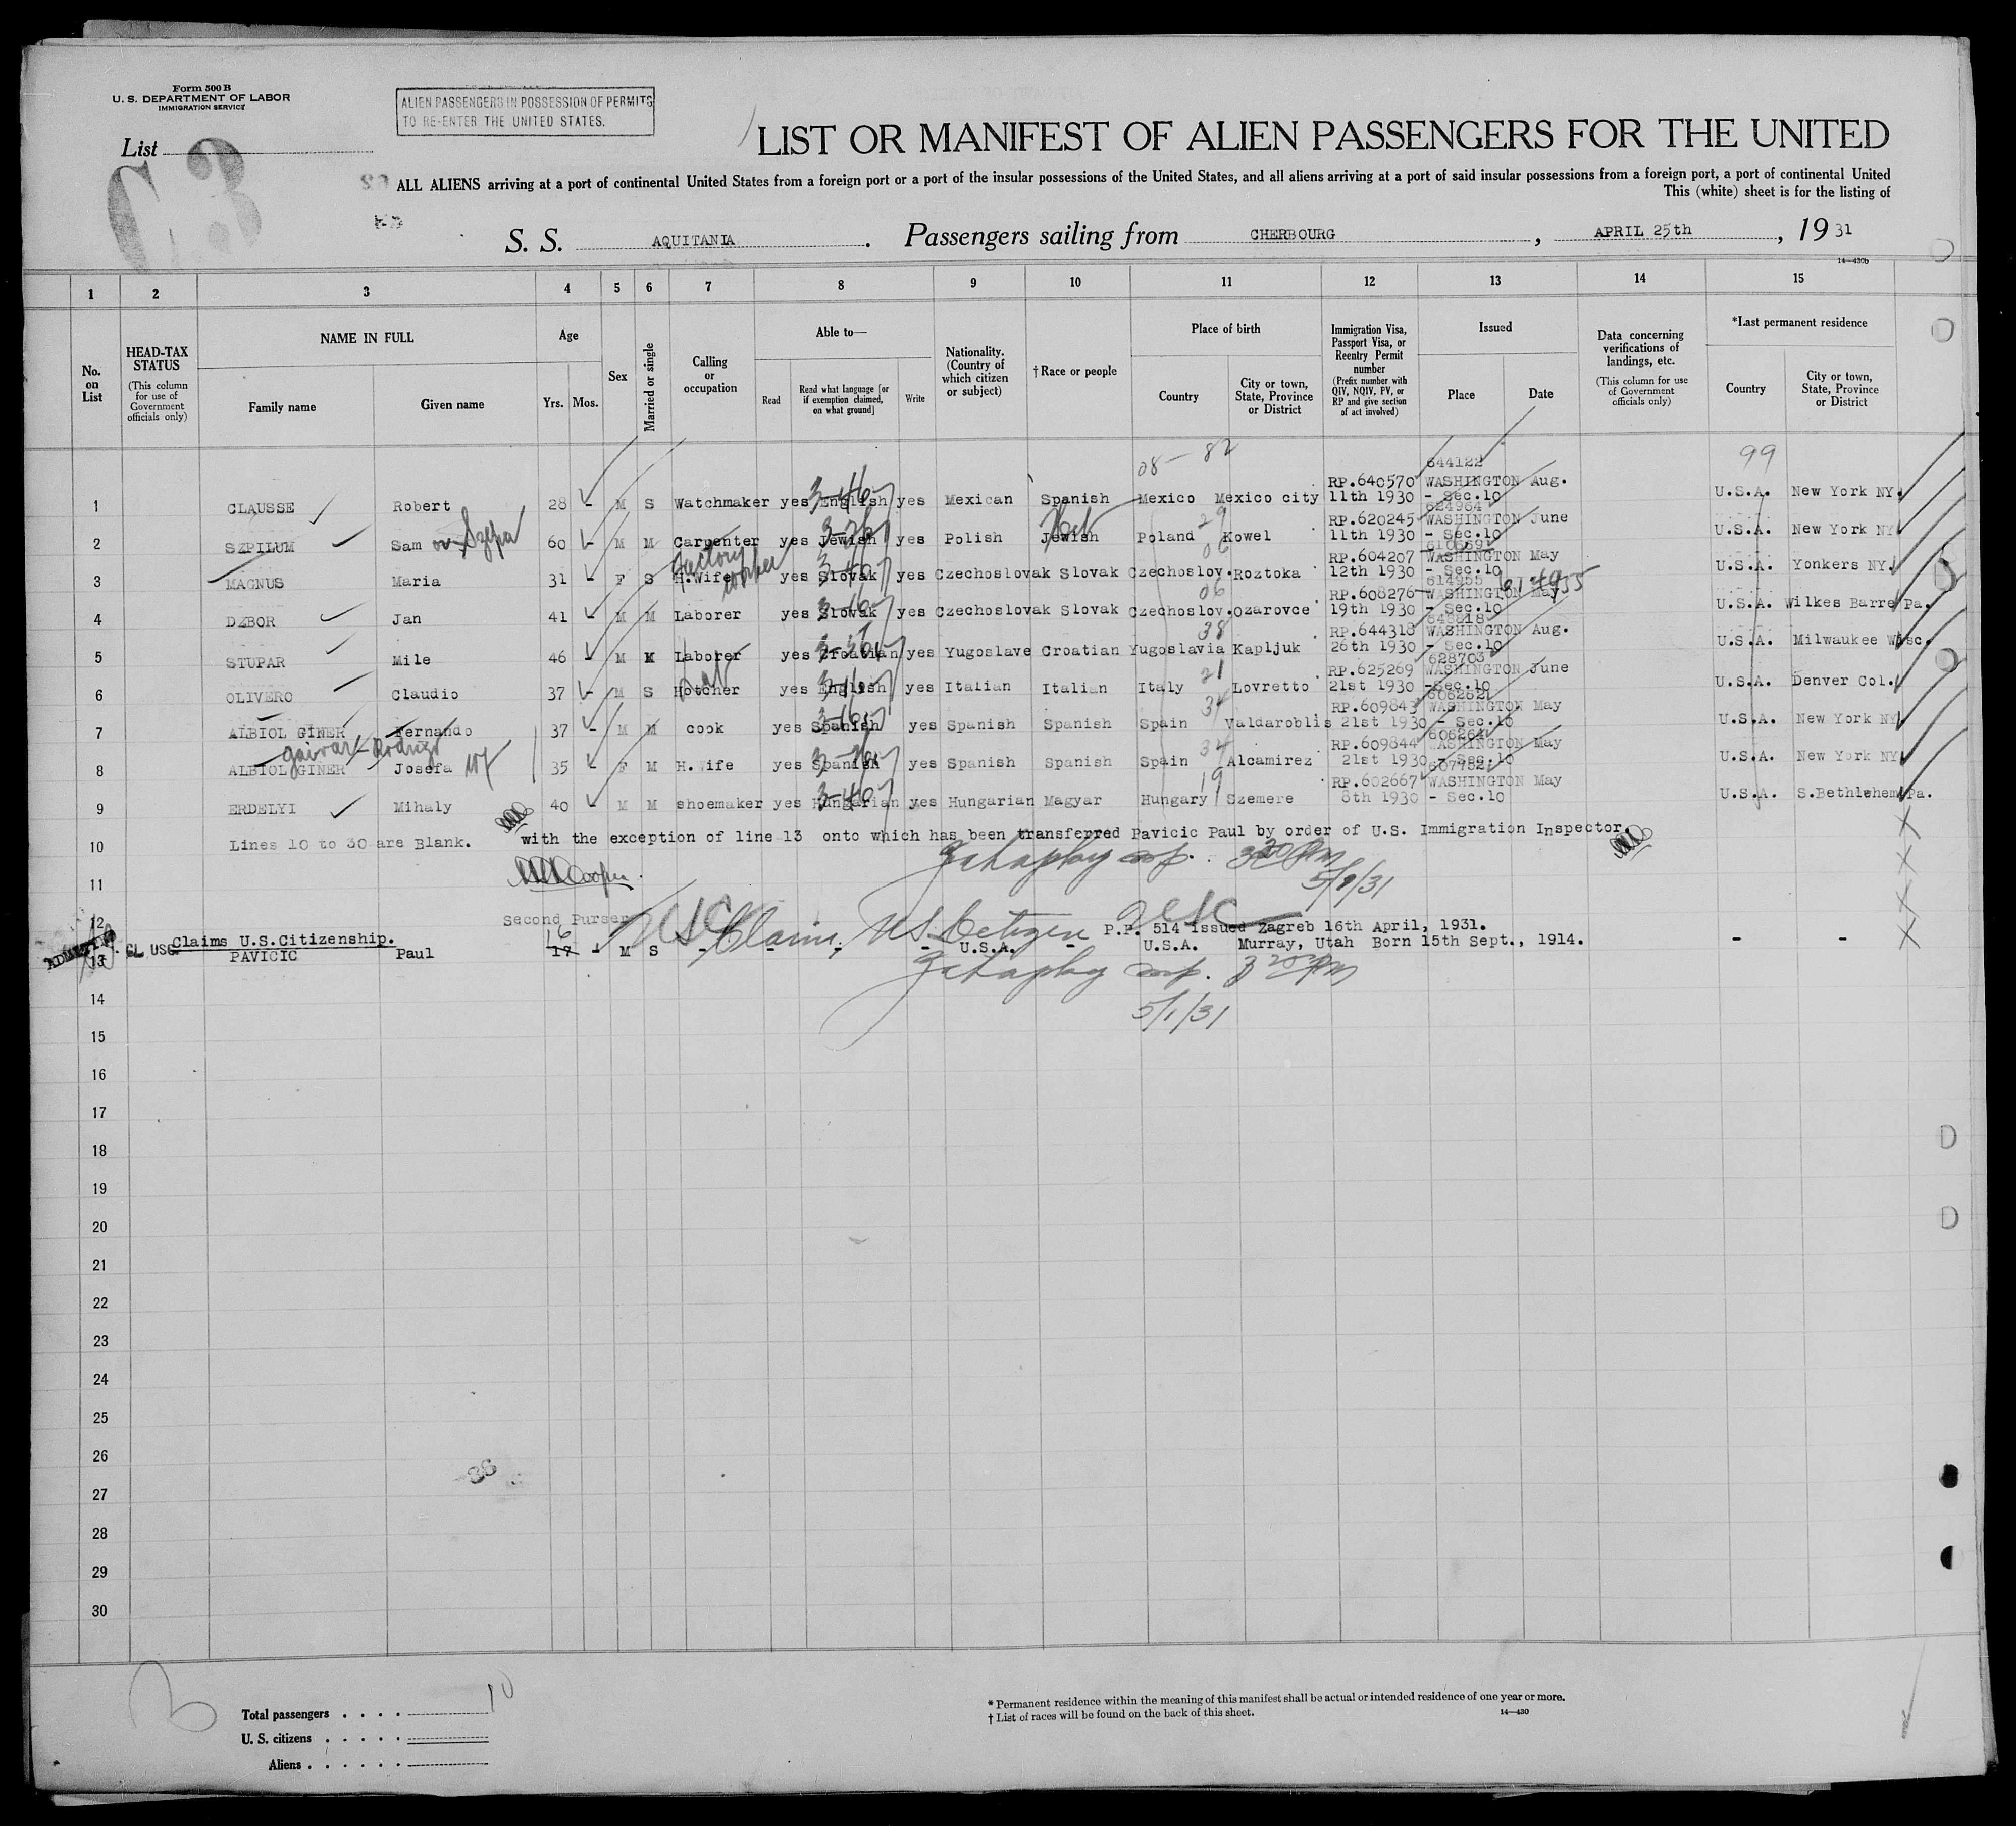 Form 500 B
U. S. DEPARTMENT OF LABOR
IMMIGRATION SERVICE
ALIEN PASSENGERS IN POSSESSION OF PERMITS
TO RE-ENTER THE UNITED STATES.
List
C3
LIST OR MANIFEST OF ALIEN PASSENGERS FOR THE UNITED
ALL ALIENS arriving at a port of continental United States from a foreign port or a port of the insular possessions of the United States, and all aliens arriving at a port of said insular possessions from a foreign port, a port of continental United
This (white) sheet is for the listing of
S. S. AQUITANIA. Passengers sailing from CHERBOURG, APRIL 25th, 19 31
14—430b
1 2 3 4 5 6 7 8 9 10 11 12 13 14 15
No. on List
HEAD-TAX STATUS (This column for use of Government officials only)
NAME IN FULL Family name Given name
Age Yrs. Mos.
Sex
Married or single
Calling or occupation
Able to— Read Read what language [or if exemption claimed, on what ground] Write
Nationality. (Country of which citizen or subject)
†Race or people
Place of birth Country City or town, State, Province or District
Immigration Visa, Passport Visa, or Reentry Permit number (Prefix number with QIV, NQIV, PV, or RP and give section of act involved)
Issued Place Date
Data concerning verifications of landings, etc. (This column for use of Government officials only)
*Last permanent residence Country City or town, State, Province or District
08 — 82 644122 99
1 CLAUSSE Robert 28 - M S Watchmaker yes English yes Mexican Spanish Mexico Mexico city RP.640570 WASHINGTON Aug. 11th 1930 - Sec.10 U.S.A. New York NY.
2 SEPILUM Sam 60 - M M Carpenter yes Jewish yes Polish Jewish Poland Kowel RP.620245 WASHINGTON June 11th 1930 - Sec.10 U.S.A. New York NY
factory worker
3 MAGNUS Maria 31 - F S H.Wife yes Slovak yes Czechoslovak Slovak Czechoslov. Roztoka RP.604207 WASHINGTON May 12th 1930 - Sec.10 U.S.A. Yonkers NY.
614955
4 DZBOR Jan 41 - M M Laborer yes Slovak yes Czechoslovak Slovak Czechoslov. Ozarovce RP.608276 WASHINGTON May 19th 1930 - Sec.10 U.S.A. Wilkes Barre Pa.
5 STUPAR Mile 46 - M M Laborer yes Croatian yes Yugoslave Croatian Yugoslavia Kapljuk RP.644318 WASHINGTON Aug. 26th 1930 - Sec.10 U.S.A. Milwaukee Wisc.
628703
6 OLIVERO Claudio 37 - M S Hotcher yes English yes Italian Italian Italy Lovretto RP.625269 WASHINGTON June 21st 1930 - Sec.10 U.S.A. Denver Col.
7 ALBIOL GINER Fernando 37 - M M cook yes Spanish yes Spanish Spanish Spain Valdaroblis RP.609843 WASHINGTON May 21st 1930 - Sec.10 U.S.A. New York NY
8 ALBIOL GINER Josefa 35 - F M H.Wife yes Spanish yes Spanish Spanish Spain Alcamirez RP.609844 WASHINGTON May 21st 1930 - Sec.10 U.S.A. New York NY
9 ERDELYI Mihaly 40 - M M shoemaker yes Hungarian yes Hungarian Magyar Hungary Szemere RP.602667 WASHINGTON May 8th 1930 - Sec.10 U.S.A. S.Bethlehem Pa.
10 Lines 10 to 30 are Blank. with the exception of line 13 onto which has been transferred Pavicic Paul by order of U.S. Immigration Inspector.
11 5/1/31
12 Second Purser
USC Claims US Citizen
ADMITTED CL USC Claims U.S.Citizenship. P.P. 514 issued Zagreb 16th April, 1931.
13 PAVICIC Paul 16 17 - M S - - - - U.S.A. - U.S.A. Murray, Utah Born 15th Sept., 1914. - -
14
5/1/31
15
16
17
18
19
20
21
22
23
24
25
26
27
28
29
30
Total passengers . . . . 10
U. S. citizens . . . . .
Aliens . . . . . .
* Permanent residence within the meaning of this manifest shall be actual or intended residence of one year or more.
† List of races will be found on the back of this sheet.
14—430